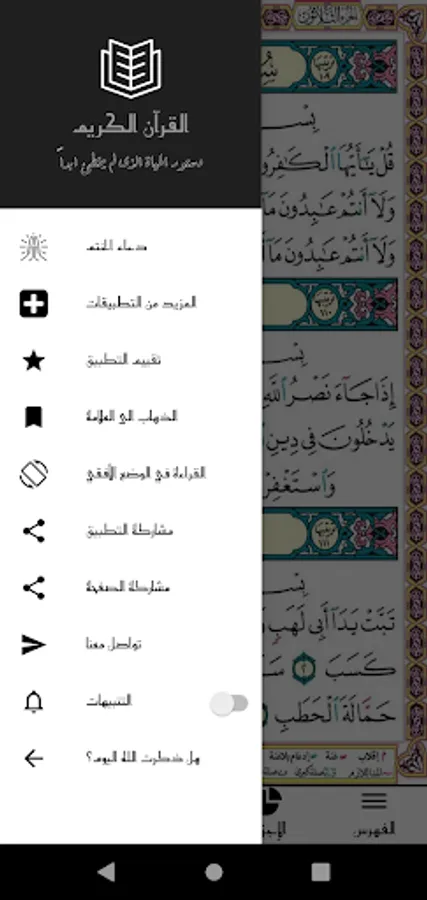 القرآن الكريم
دستور الحياة الذى لم يخطئ ابداً
دعاء الختم
المزيد من التطبيقات
تقييم التطبيق
الذهاب الى العلامة
القراءة في الوضع الأفقي
مشاركة التطبيق
مشاركة الصفحة
تواصل معنا
التنبيهات
هل ذكرت الله اليوم؟
الجزء الثلاثون
قُلْ يَٰٓأَيُّهَا ٱلْكَٰفِرُو
وَلَآ أَنتُمْ عَٰبِدُونَ مَآ
وَلَآ أَنتُمْ عَٰبِدُونَ مَآ أ
بِسـ
إِذَا جَآءَ نَصْرُ ٱللَّهِ
يَدْخُلُونَ فِي دِينِ
وَٱسْتَغْفِرْ
بِسـ
تَبَّتْ يَدَآ أَبِي لَهَبٍ وَ
كَسَبَ ٢ سَـ
حَمَّالَةَ ٱلْحَطَبِ
الفهرس